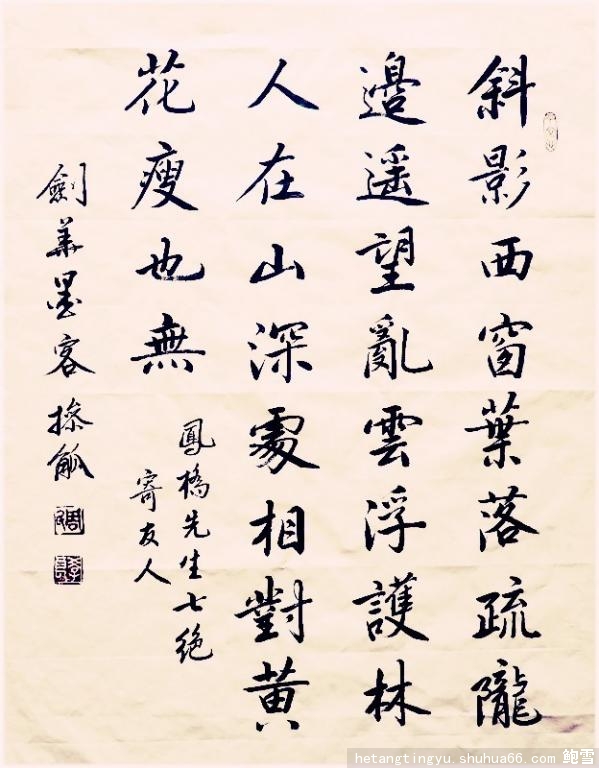 斜影西窗葉落疏隴
邊遥望亂雲浮護林
人在山深處相對黃
花瘦也無
鳳橋先生七絕
寄友人
劍華墨客操觚
hetangtingyu.shuhua66.com 鲍雪